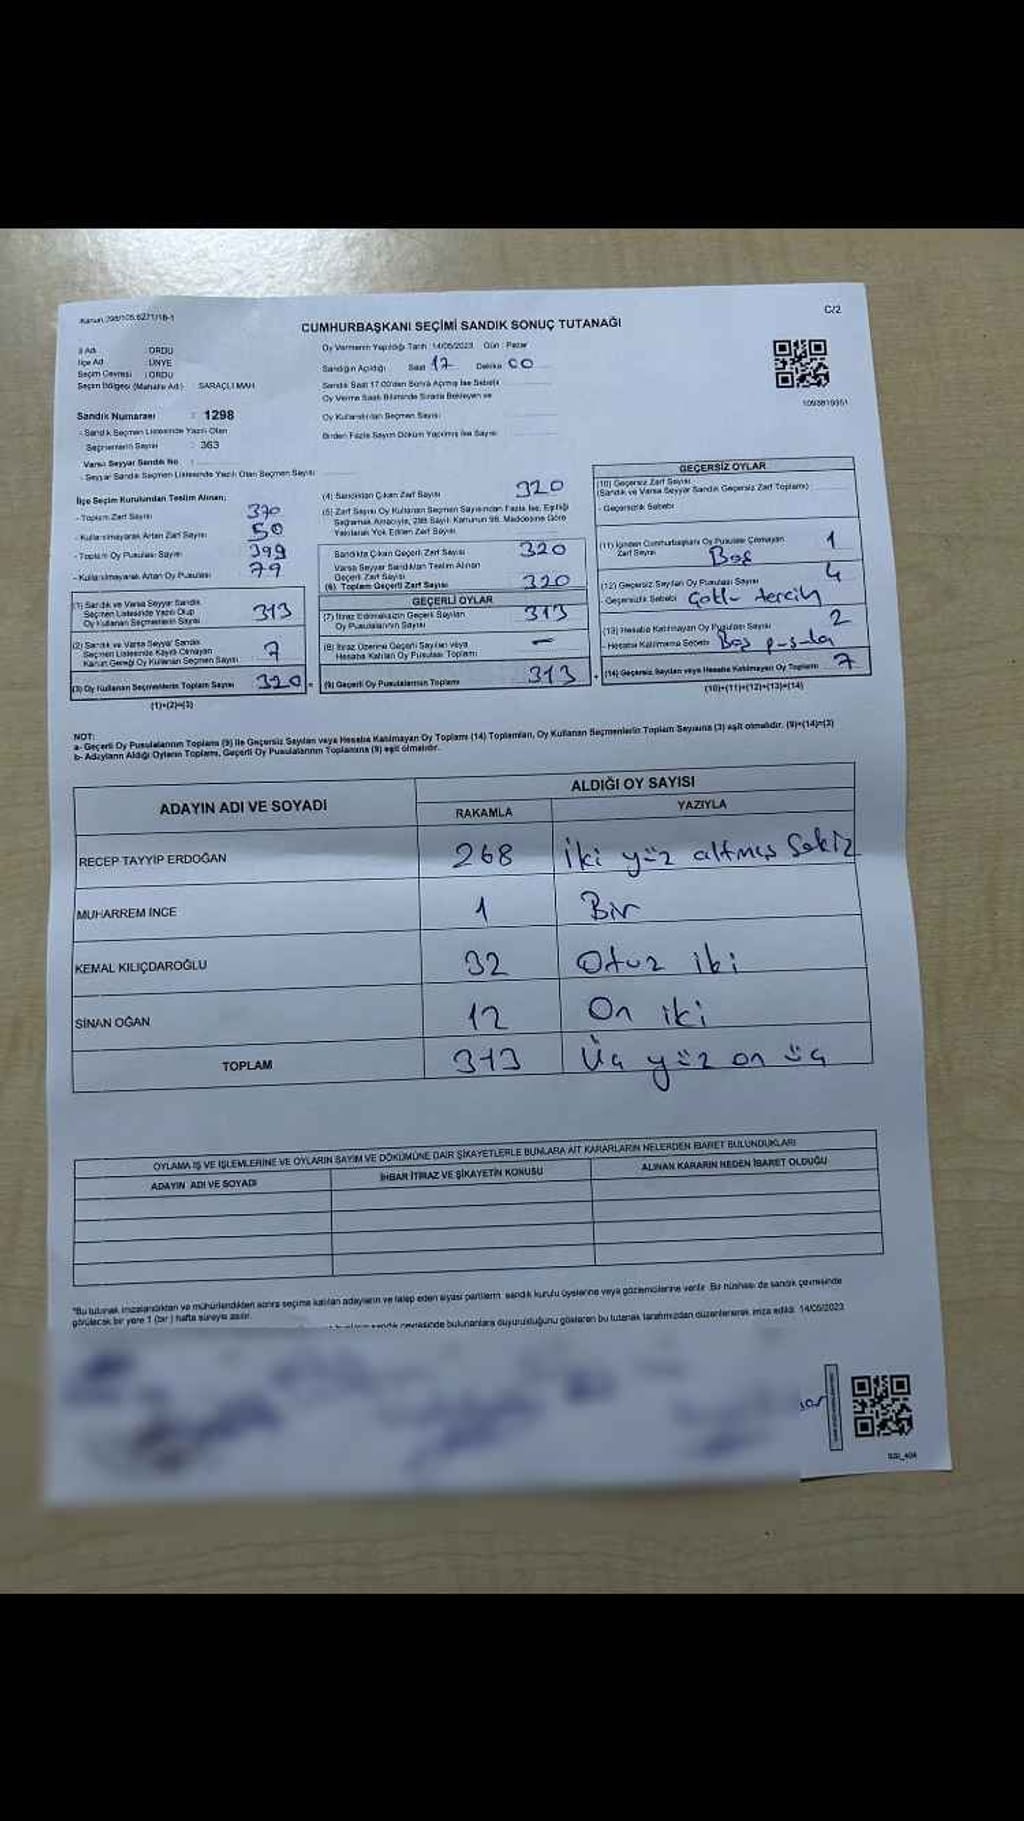 Kanun 298/105,6271/18-1
C/2
CUMHURBAŞKANI SEÇİMİ SANDIK SONUÇ TUTANAĞI
İl Adı : ORDU
İlçe Adı : ÜNYE
Seçim Çevresi : ORDU
Seçim Bölgesi (Mahalle Ad.) SARAÇLI MAH
Sandık Numarası : 1298
- Sandık Seçmen Listesinde Yazılı Olan
Seçmenlerin Sayısı : 363
Varsa Seyyar Sandık No :
- Seyyar Sandık Seçmen Listesinde Yazılı Olan Seçmen Sayısı
Oy Vermenin Yapıldığı Tarih : 14/05/2023 Gün : Pazar
Sandığın Açıldığı Saat 17 Dakika 00
Sandık Saat 17.00'den Sonra Açılmış İse Sebebi
Oy Verme Saati Bitiminde Sırada Bekleyen ve
Oy Kullandırılan Seçmen Sayısı
Birden Fazla Sayım Döküm Yapılmış İse Sayısı
1093819351
İlçe Seçim Kurulundan Teslim Alınan;
- Toplam Zarf Sayısı 370
- Kullanılmayarak Artan Zarf Sayısı 50
- Toplam Oy Pusulası Sayısı 399
- Kullanılmayarak Artan Oy Pusulası 79
(1) Sandık ve Varsa Seyyar Sandık
Seçmen Listesinde Yazılı Olup
Oy Kullanan Seçmenlerin Sayısı 313
(2) Sandık ve Varsa Seyyar Sandık
Seçmen Listesinde Kayıtlı Olmayan
Kanun Gereği Oy Kullanan Seçmen Sayısı 7
(3) Oy Kullanan Seçmenlerin Toplam Sayısı 320 =
(1)+(2)=(3)
(4) Sandıktan Çıkan Zarf Sayısı 320
(5) Zarf Sayısı Oy Kullanan Seçmen Sayısından Fazla İse, Eşitliği
Sağlamak Amacıyla, 298 Sayılı Kanunun 98. Maddesine Göre
Yakılarak Yok Edilen Zarf Sayısı
Sandıkta Çıkan Geçerli Zarf Sayısı 320
Varsa Seyyar Sandıktan Teslim Alınan
Geçerli Zarf Sayısı
(6) Toplam Geçerli Zarf Sayısı 320
GEÇERLİ OYLAR
(7) İtiraz Edilmeksizin Geçerli Sayılan
Oy Pusulalarının Sayısı 313
(8) İtiraz Üzerine Geçerli Sayılan veya
Hesaba Katılan Oy Pusulası Toplamı —
(9) Geçerli Oy Pusulalarının Toplamı 313 +
GEÇERSİZ OYLAR
(10) Geçersiz Zarf Sayısı
(Sandık ve Varsa Seyyar Sandık Geçersiz Zarf Toplamı)
- Geçersizlik Sebebi
(11) İçinden Cumhurbaşkanı Oy Pusulası Çıkmayan
Zarf Sayısı Boş 1
(12) Geçersiz Sayılan Oy Pusulası Sayısı 4
- Geçersizlik Sebebi Çoklu tercih
(13) Hesaba Katılmayan Oy Pusulası Sayısı 2
- Hesaba Katılmama Sebebi Boş pusula
(14) Geçersiz Sayılan veya Hesaba Katılmayan Oy Toplamı 7
(10)+(11)+(12)+(13)=(14)
NOT:
a- Geçerli Oy Pusulalarının Toplamı (9) ile Geçersiz Sayılan veya Hesaba Katılmayan Oy Toplamı (14) Toplamları, Oy Kullanan Seçmenlerin Toplam Sayısına (3) eşit olmalıdır. (9)+(14)=(3)
b- Adayların Aldığı Oyların Toplamı, Geçerli Oy Pusulalarının Toplamına (9) eşit olmalıdır.
ADAYIN ADI VE SOYADI
ALDIĞI OY SAYISI
RAKAMLA YAZIYLA
RECEP TAYYİP ERDOĞAN 268 İki yüz altmış sekiz
MUHARREM İNCE 1 Bir
KEMAL KILIÇDAROĞLU 32 Otuz iki
SİNAN OĞAN 12 On iki
TOPLAM 313 Üç yüz on üç
OYLAMA İŞ VE İŞLEMLERİNE VE OYLARIN SAYIM VE DÖKÜMÜNE DAİR ŞİKAYETLERLE BUNLARA AİT KARARLARIN NELERDEN İBARET BULUNDUKLARI
ADAYIN ADI VE SOYADI İHBAR İTİRAZ VE ŞİKAYETİN KONUSU ALINAN KARARIN NEDEN İBARET OLDUĞU
"Bu tutanak imzalandıktan ve mühürlendikten sonra seçime katılan adayların ve talep eden siyasi partilerin sandık kurulu üyelerine veya gözlemcilerine verilir. Bir nüshası de sandık çevresinde
görülecek bir yere 1 (bir) hafta süreyle asılır.
sandık çevresinde bulunanlara duyurulduğunu gösteren bu tutanak tarafımızdan düzenlenerek imza edildi. 14/05/2023